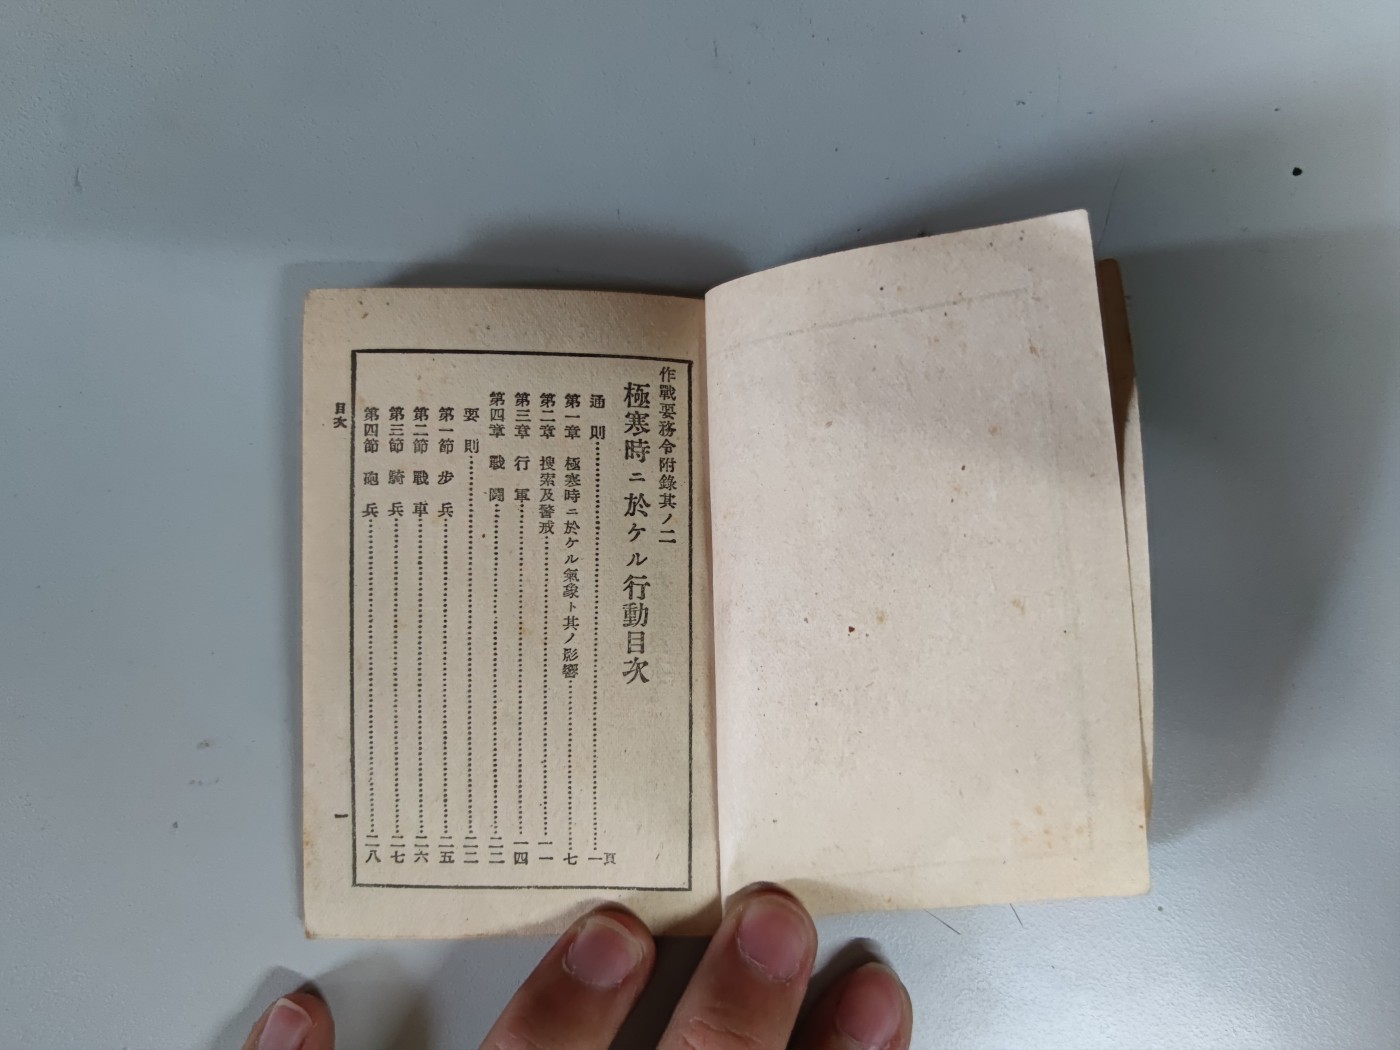 作戰要務令附錄其ノ二
極寒時ニ於ケル行動目次
通則……一頁
第一章 極寒時ニ於ケル氣象ト其ノ影響……七
第二章 搜索及警戒……一一
第三章 行軍……一四
第四章 戰鬪……二二
要則……二二
第一節 步兵……二五
第二節 戰車……二六
第三節 騎兵……二七
第四節 砲兵……二八
目次 一